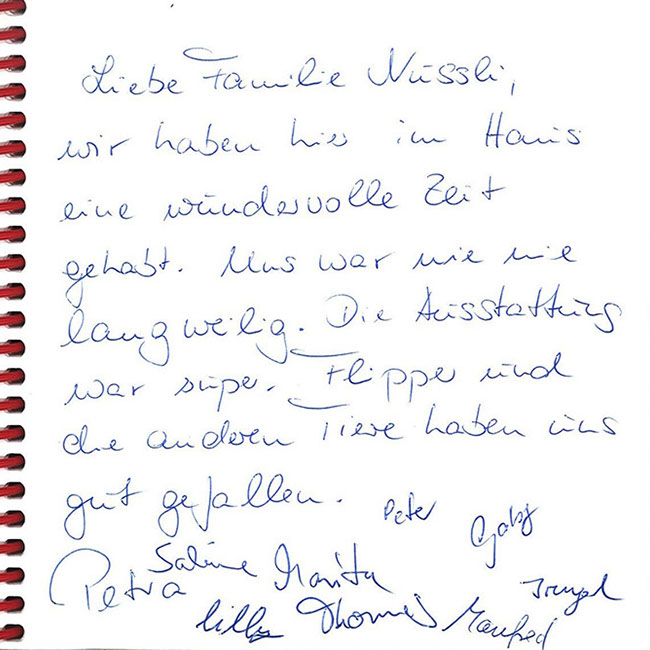 Liebe Familie Nüssli,
wir haben hier im Haus
eine wundervolle Zeit
gehabt. Uns war nie nie
langweilig. Die Ausstattung
war super. Flipper und
die anderen Tiere haben uns
gut gefallen. Peter Gaby
Petra Sabine Marita
Thomas Manfred